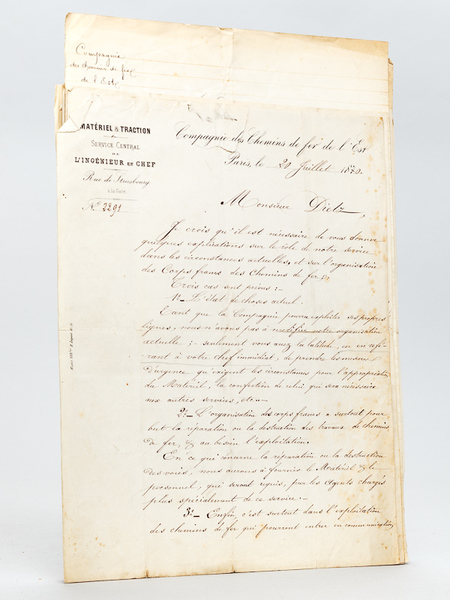 Compagnie
des chemins de fer
de l'Est
MATÉRIEL & TRACTION
SERVICE CENTRAL
DE
L'INGÉNIEUR EN CHEF
Rue de Strasbourg
à la Gare
N° 2291
Compagnie des Chemins de fer de l'Est
Paris, le 24 Juillet 1870.
Monsieur Dietz,
Je crois qu'il est nécessaire de vous donner
quelques explications sur le rôle de notre service
dans les circonstances actuelles, et sur l'organisation
des Corps francs des chemins de fer.
Trois cas sont prévus :-
1° - L'état de choses actuel.
Tant que la Compagnie pourra exploiter ses propres
lignes, nous n'avons pas à modifier notre organisation
actuelle ; - seulement vous avez la latitude, en en réfé-
rant à votre chef immédiat, de prendre les mesures
d'urgence qu'exigent les circonstances pour l'appropriation
du Matériel, la confection de celui qui sera nécessaire
aux autres services, etc..
2° - L'organisation des corps francs a surtout pour
but la réparation ou la destruction des travaux de chemins
de fer, & au besoin l'exploitation.
En ce qui concerne la réparation ou la destruction
des voies, nous aurons à fournir le Matériel & le
personnel, qui seront requis, par les Agents chargés
plus spécialement de ce service.-
3° - Enfin c'est surtout dans l'exploitation
des chemins de fer qui pourront entrer en communication